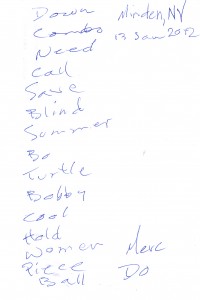 Down Minden, NY
Combo 13 Jan 2012
Need
Call
Save
Blind
Summer
Bo
Turtle
Bobby
Cool
Hold
Women Merc
Piece Do
Ball